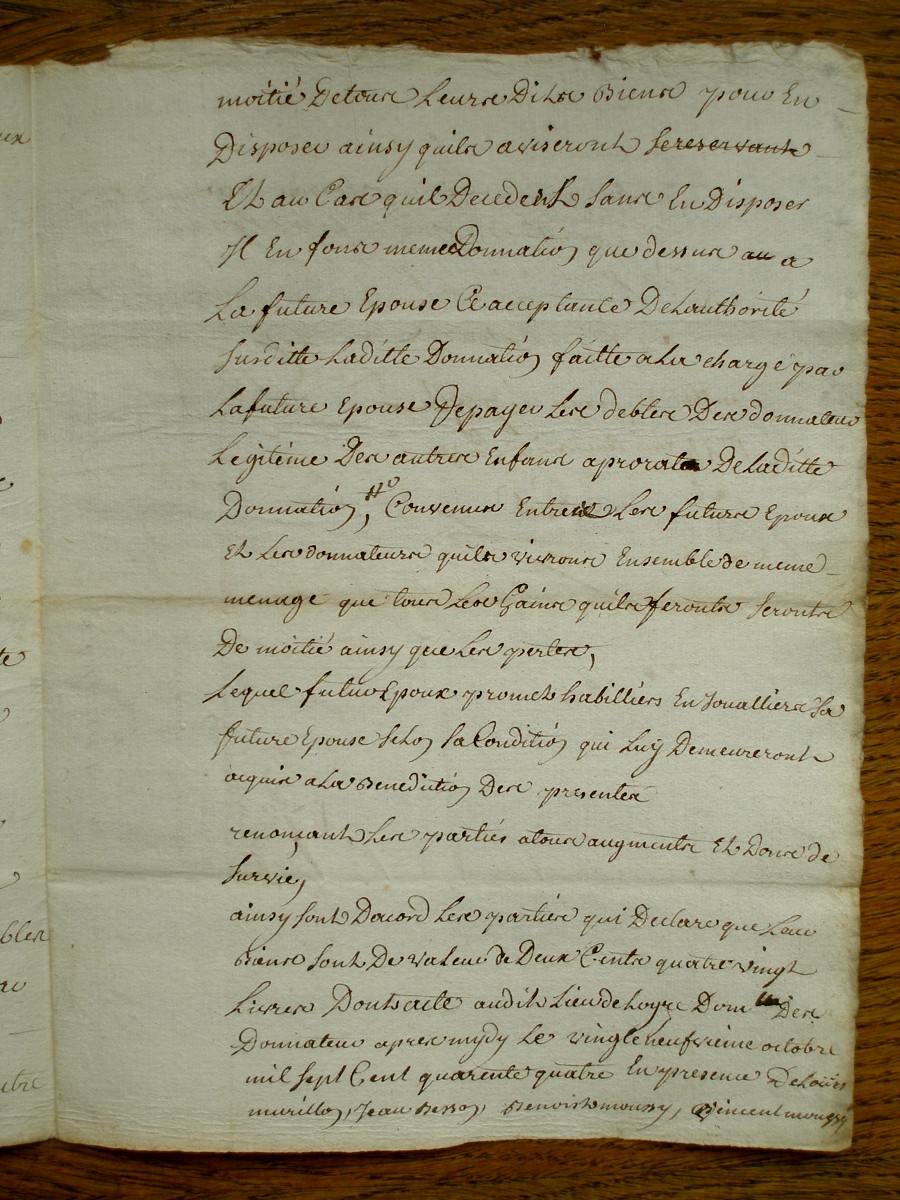 moitié De tous Leurs Dits Biens pour En
Disposer ainsy quils aviseront se reservants
Et au Cas quil Decedent sans En Disposer
Il En fons meme Donnation que dessus au a
La future Epouse Ce acceptante De Lauthorité
susditte Laditte Donnation faitte a La charge par
La future Epouse De payer Les debtes Des donnateurs
Legitime Des autres Enfans a prorata De Laditte
Donnation, Convenus Entre Les futurs Epoux
Et Les donnateurs quils vivrons Ensemble de meme
menage que tous Les Gains quils feronts seronts
De moitié ainsy que Les pertes,
Lequel futur Epoux promet habilliers En Joualliers sa
future Epouse selon sa Condition qui Luy Demeureront
acquis a La Benediction Des presentes
renonçant Les parties a tous augments Et Dons de
survie,
ainsy sont Dacord Les parties qui Declare que Leur
Biens sont De valeur de Deux Cents quatre vingt
Livres Dont acte audit Lieu de Dom Des
Donnateur apres mydy Le vingt neufvieme octobre
mil sept Cent quarente quatre En presence De
murillon, Jean Besson, Benoist moussy, Vincent moussy
ux
te
bles
utre